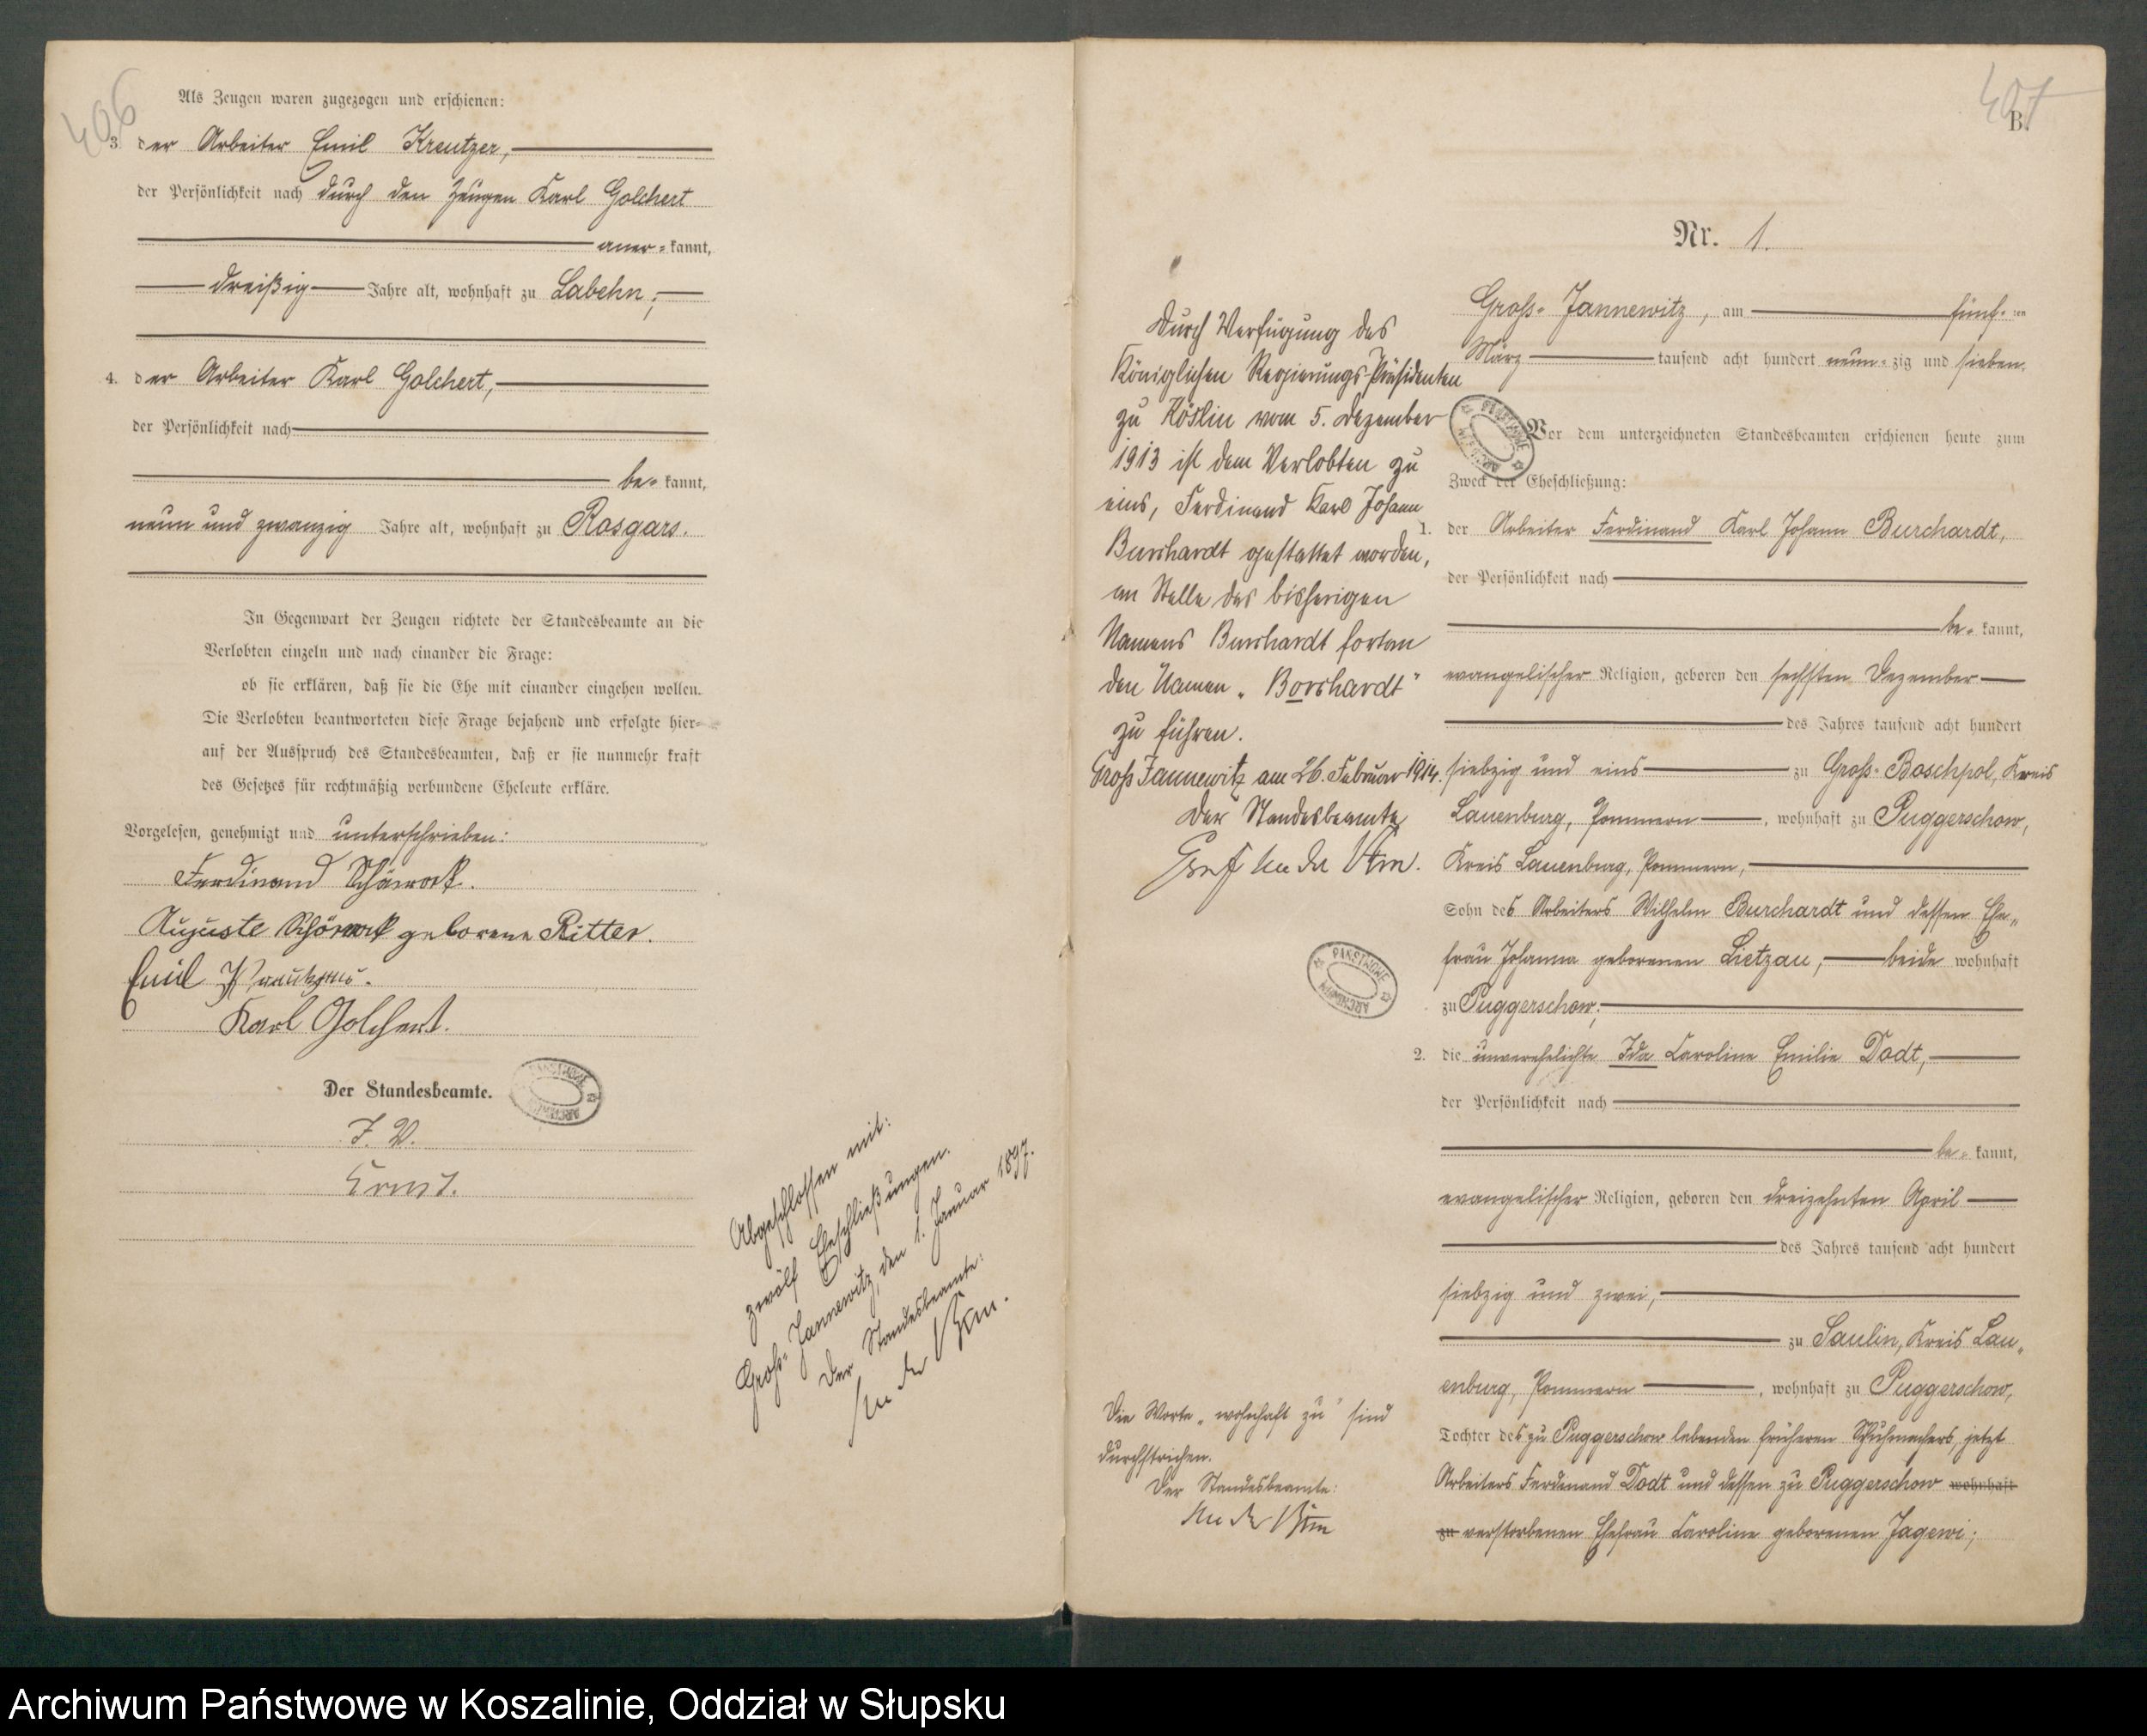 406
Als Zeugen waren zugezogen und erschienen:
3. der Arbeiter Emil Kreutzer,
der Persönlichkeit nach durch den Zeugen Karl Golchert
aner-kannt,
dreißig Jahre alt, wohnhaft zu Labehn;
4. der Arbeiter Karl Golchert,
der Persönlichkeit nach
be-kannt,
neun und zwanzig Jahre alt, wohnhaft zu Rosgars.
In Gegenwart der Zeugen richtete der Standesbeamte an die
Verlobten einzeln und nach einander die Frage:
ob sie erklären, daß sie die Ehe mit einander eingehen wollen.
Die Verlobten beantworteten diese Frage bejahend und erfolgte hier-
auf der Ausspruch des Standesbeamten, daß er sie nunmehr kraft
des Gesetzes für rechtmäßig verbundene Eheleute erkläre.
Vorgelesen, genehmigt und unterschrieben:
Ferdinand
Auguste geborene Ritter.
Emil
Karl Golchert.
Der Standesbeamte.
PAŃSTWOWE ARCHIWUM
J. V.
Ernst.
Abgeschlossen mit:
zwölf Eheschließungen.
Groß-Jannewitz, den 1. Januar 1897.
Der Standesbeamte:
407
B.
Nr. 1.
Groß-Jannewitz, am fünf-ten
März tausend acht hundert neun-zig und sieben.
PAŃSTWOWE ARCHIWUM
Vor dem unterzeichneten Standesbeamten erschienen heute zum
Zweck der Eheschließung:
1. der Arbeiter Ferdinand Karl Johann Burchardt,
der Persönlichkeit nach
be-kannt,
evangelischer Religion, geboren den sechsten Dezember
des Jahres tausend acht hundert
siebzig und eins zu Groß-Boschpol, Kreis
Lauenburg, Pommern, wohnhaft zu Puggerschow,
Kreis Lauenburg, Pommern,
Sohn des Arbeiters Wilhelm Burchardt und dessen Ehe-
frau Johanna geborenen Lietzau, beide wohnhaft
zu Puggerschow;
2. die unverehelichte Ida Caroline Emilie Dodt,
der Persönlichkeit nach
be-kannt,
evangelischer Religion, geboren den dreizehnten April
des Jahres tausend acht hundert
siebzig und zwei,
zu Saulin, Kreis Lau-
enburg, Pommern, wohnhaft zu Puggerschow,
Tochter des zu Puggerschow lebenden früheren Schuhmachers, jetzt
Arbeiters Ferdinand Dodt und dessen zu Puggerschow wohnhaft
zu verstorbenen Ehefrau Caroline geborenen Jagewi;
Durch Verfügung des
Königlichen Regierungs-Präsidenten
zu Köslin vom 5. Dezember
1913 ist dem Verlobten zu
eins, Ferdinand Karl Johann
Burchardt gestattet worden,
an Stelle des bisherigen
Namens Burchardt fortan
den Namen „Borchardt"
zu führen.
Groß Jannewitz am 26. Februar 1914.
Der Standesbeamte
Graf
PAŃSTWOWE ARCHIWUM
Die Worte „wohnhaft zu" sind
durchstrichen.
Der Standesbeamte:
Archiwum Państwowe w Koszalinie, Oddział w Słupsku